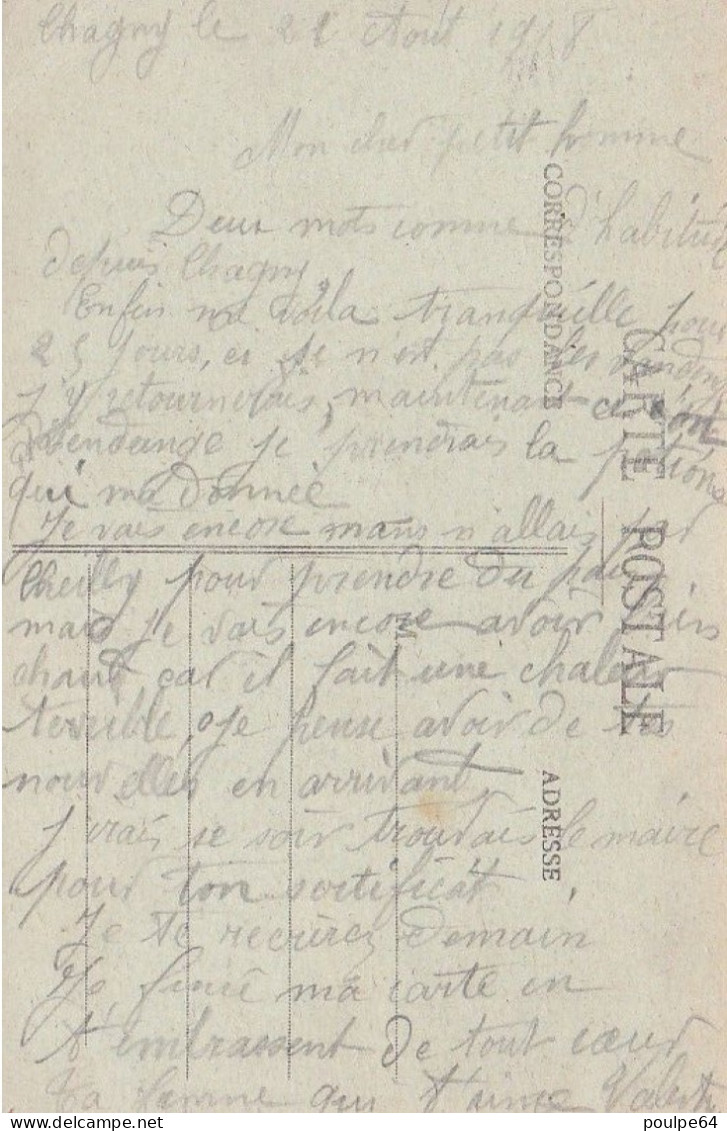 Chagny le 21 Aout 1918
Mon cher petit homme
Deux mots comme d'habitude
depuis Chagny
Enfin me voila tranquille pour
25 jours, ci se n'est pas les
j'y retournerais, maintenant
vendange je prendrais la
qui ma donnée
Je vais encore mans n'allais par
Cheilly pour prendre du pain
mais je vais encore avoir
chaud car il fait une chaleur
terrible, je pense avoir de tes
nouvelles en arrivant
j'irais se soir trouvais le maire
pour ton sertificat
Je te recuirez demain
Je finie ma carte en
t'embrassent de tout cœur
Ta femme qui t'aime
CARTE POSTALE
CORRESPONDANCE
ADRESSE
M
https://www.delcampe.net
poulpe64